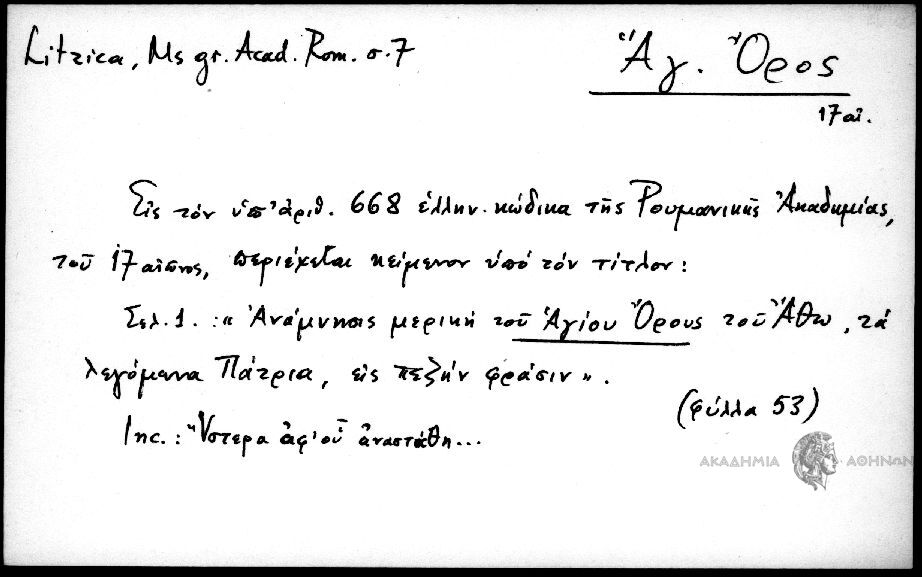 Litzica, Ms gr. Acad. Rom. σ. 7
Ἅγ. Ὄρος
17 αἰ.
Εἰς τὸν ὑπ' ἀριθ. 668 ἑλλην. κώδικα τῆς Ρουμανικῆς Ἀκαδημίας,
τοῦ 17 αἰῶνος, περιέχεται κείμενον ὑπὸ τὸν τίτλον:
Σελ. 1. : « Ἀνάμνησις μερικὴ τοῦ Ἁγίου Ὄρους τοῦ Ἄθω, τὰ
λεγόμενα Πάτρια, εἰς πεζὴν φράσιν ».
(φύλλα 53)
Inc. : Ὕστερα ἀφ' οὗ ἀναστάθη...
ΑΚΑΔΗΜΙΑ ΑΘΗΝΩΝ